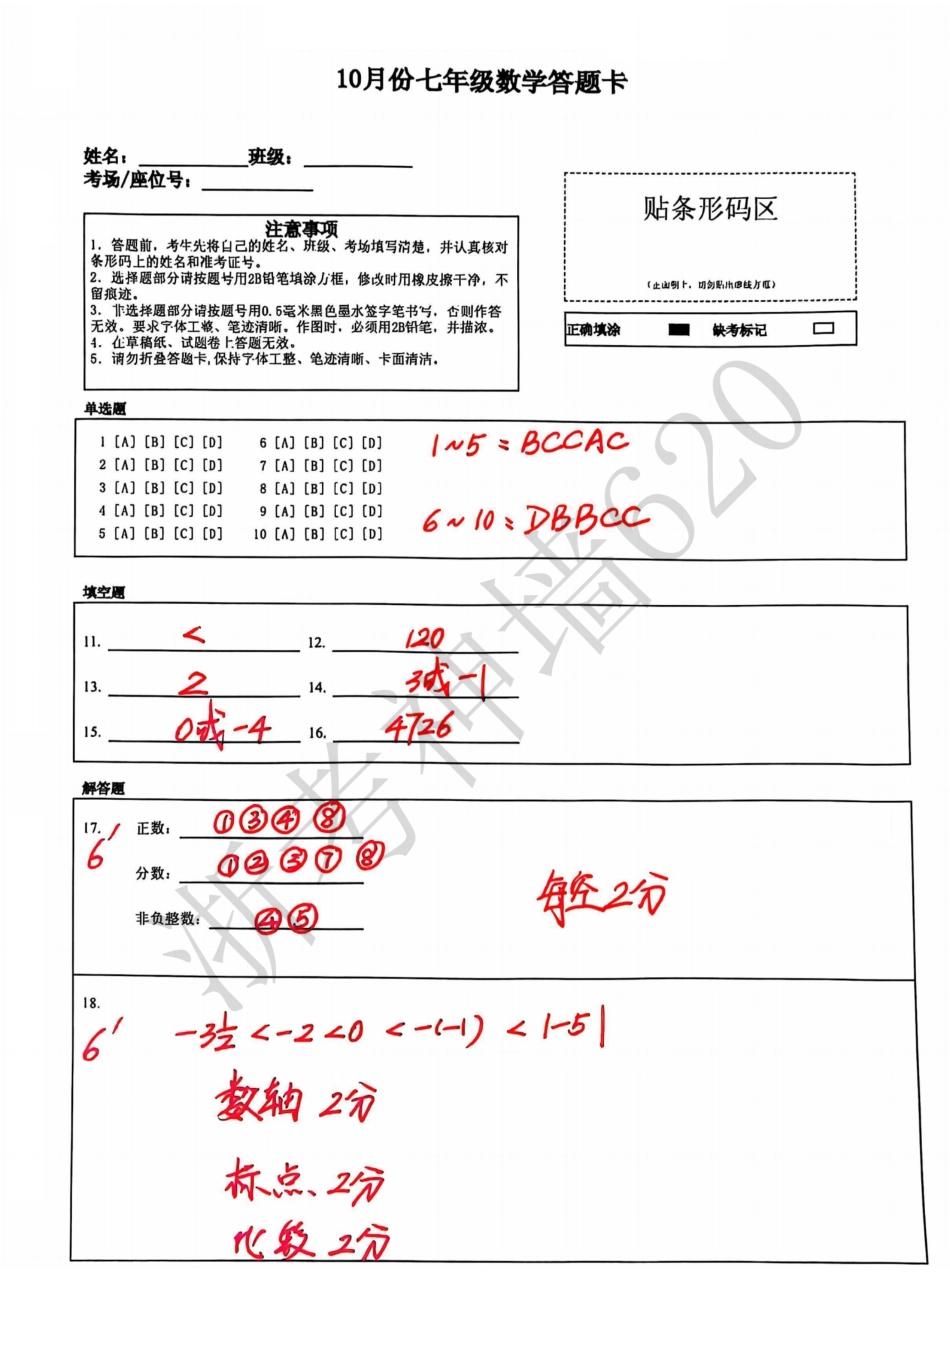 10月份七年级数学答题卡
姓名：__________班级：__________
考场/座位号：__________
贴条形码区
（正面朝上，切勿贴出虚线方框）
正确填涂 缺考标记
注意事项
1．答题前，考生先将自己的姓名、班级、考场填写清楚，并认真核对
条形码上的姓名和准考证号。
2．选择题部分请按题号用2B铅笔填涂方框，修改时用橡皮擦干净，不
留痕迹。
3．非选择题部分请按题号用0.5毫米黑色墨水签字笔书写，否则作答
无效。要求字体工整、笔迹清晰。作图时，必须用2B铅笔，并描浓。
4．在草稿纸、试题卷上答题无效。
5．请勿折叠答题卡,保持字体工整、笔迹清晰、卡面清洁。
单选题
1 [A] [B] [C] [D] 6 [A] [B] [C] [D] 1~5：BCCAC
2 [A] [B] [C] [D] 7 [A] [B] [C] [D]
3 [A] [B] [C] [D] 8 [A] [B] [C] [D]
4 [A] [B] [C] [D] 9 [A] [B] [C] [D] 6~10：DBBCC
5 [A] [B] [C] [D] 10 [A] [B] [C] [D]
填空题
11. < 12. 120
13. 2 14. 3或-1
15. 0或-4 16. 4726
解答题
17. 正数：①③④⑧
6'
分数：①②③⑦⑧
每空2分
非负整数：④⑤
18.
6' -3½<-2<0<-(-1)<|-5|
数轴 2分
标点、2分
比较 2分
浙考神墙620